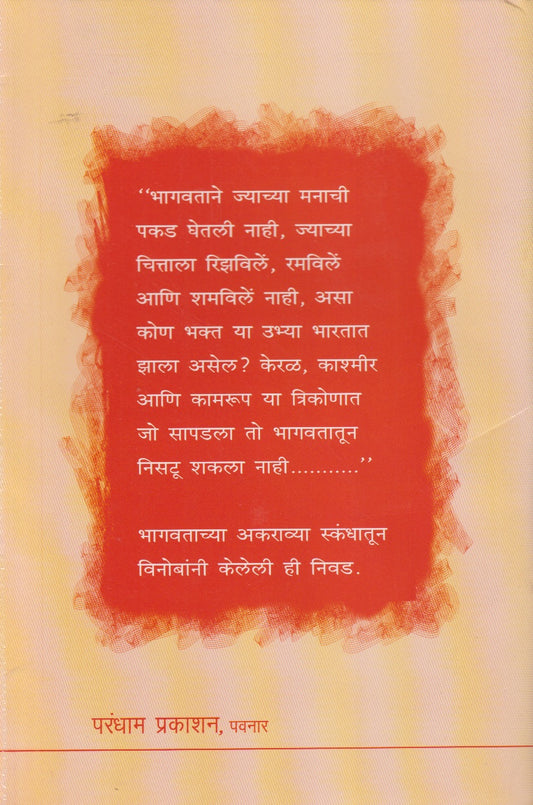 “भागवताने ज्याच्या मनाची
पकड घेतली नाही, ज्याच्या
चित्ताला रिझविलें, रमविलें
आणि शमविलें नाही, असा
कोण भक्त या उभ्या भारतात
झाला असेल? केरळ, काश्मीर
आणि कामरूप या त्रिकोणात
जो सापडला तो भागवतातून
निसटू शकला नाही...........”
भागवताच्या अकराव्या स्कंधातून
विनोबांनी केलेली ही निवड.
परंधाम प्रकाशन, पवनार